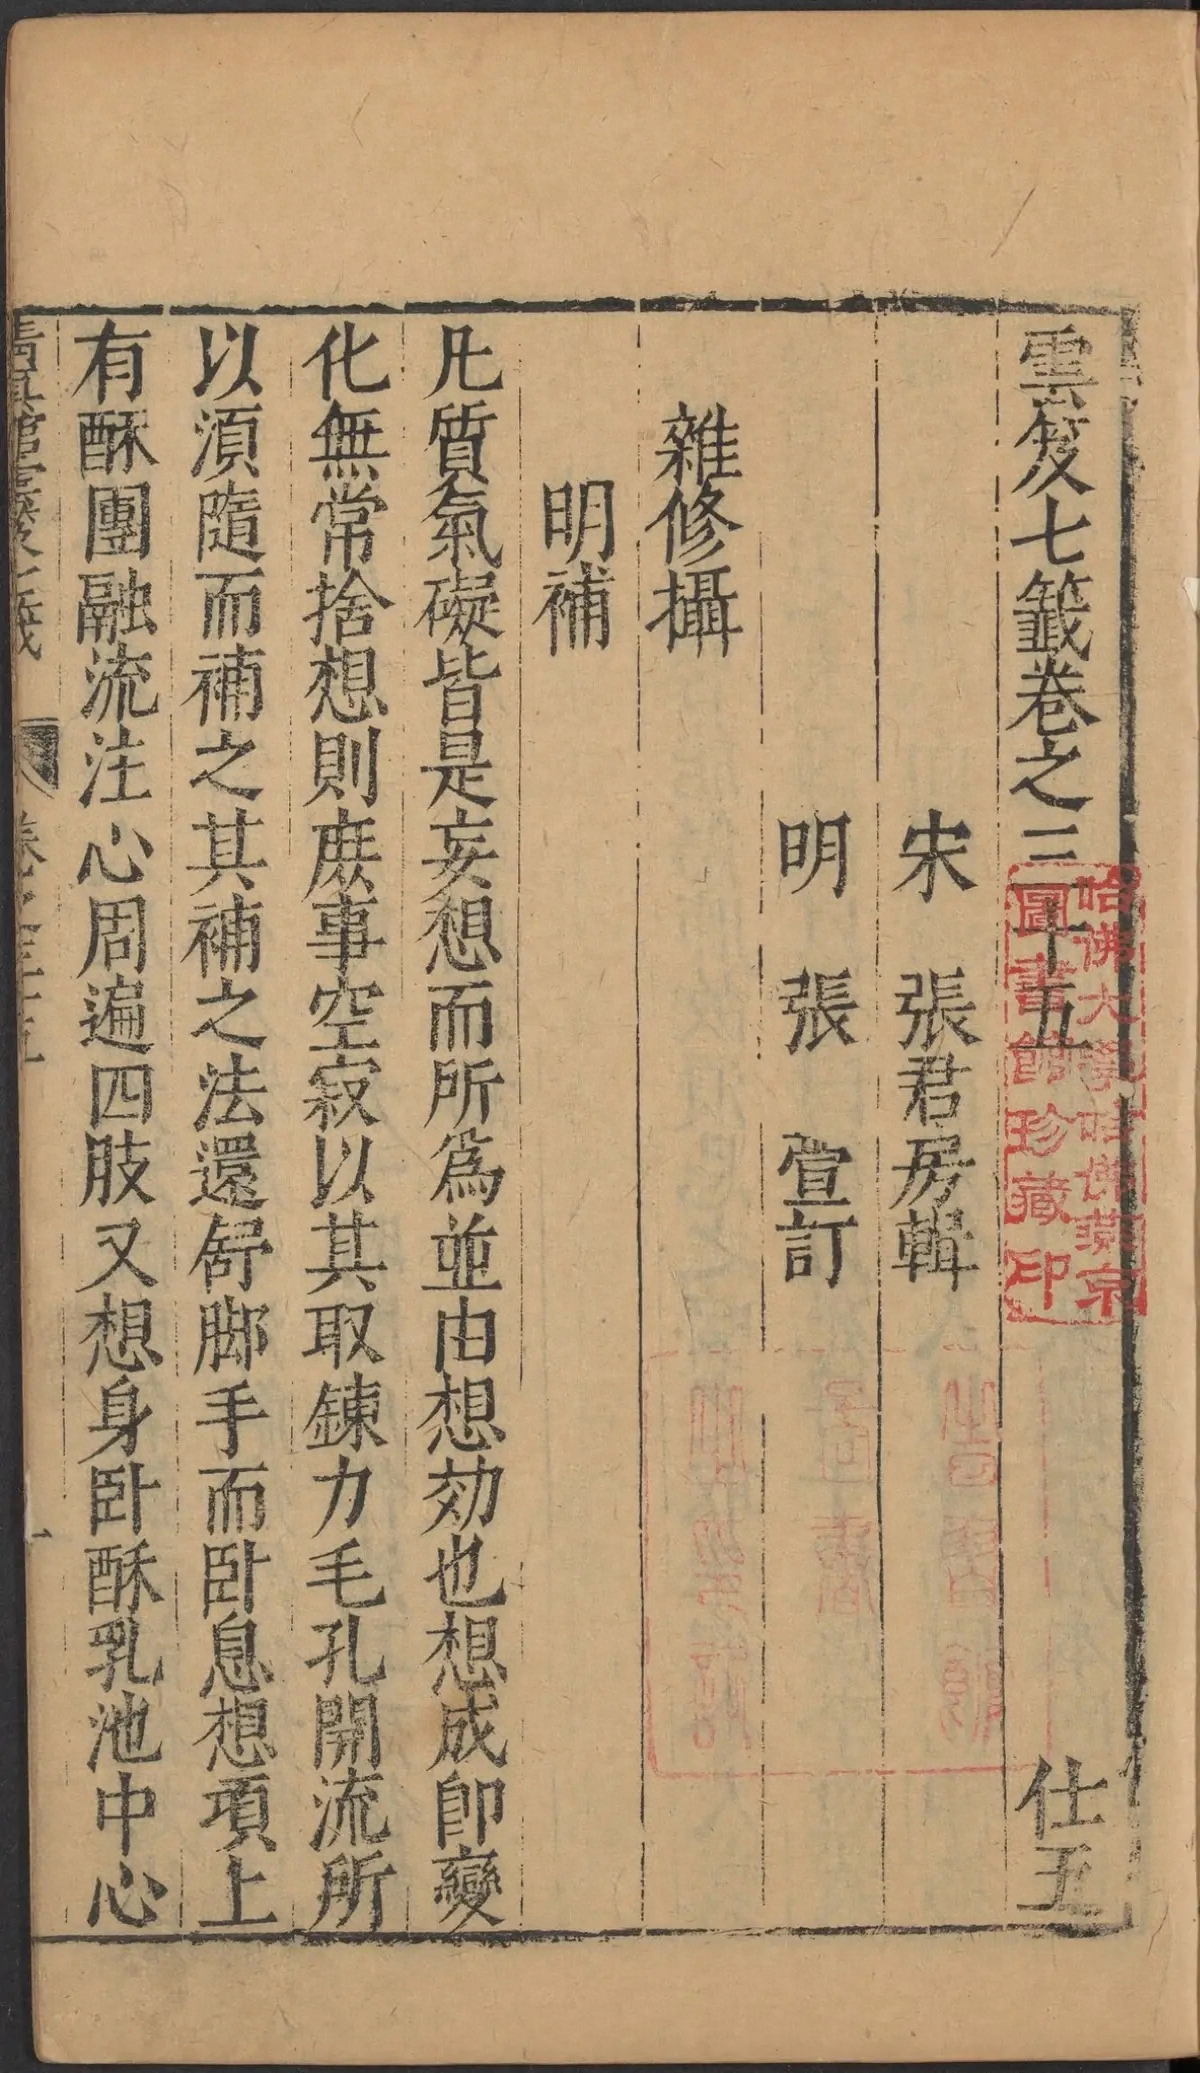 雲笈七籤卷之三十五 仕五
宋 張君房輯
明 張 萱訂
雜修攝
明補
凡質氣礙皆是妄想而所爲並由想効也想成卽變
化無常捨想則庶事空寂以其取鍊力毛孔開流所
以須隨而補之其補之法還舒脚手而卧息想項上
有酥團融流注心周遍四肢又想身卧酥乳池中心
哈佛大學哈佛燕京
圖書館珍藏印